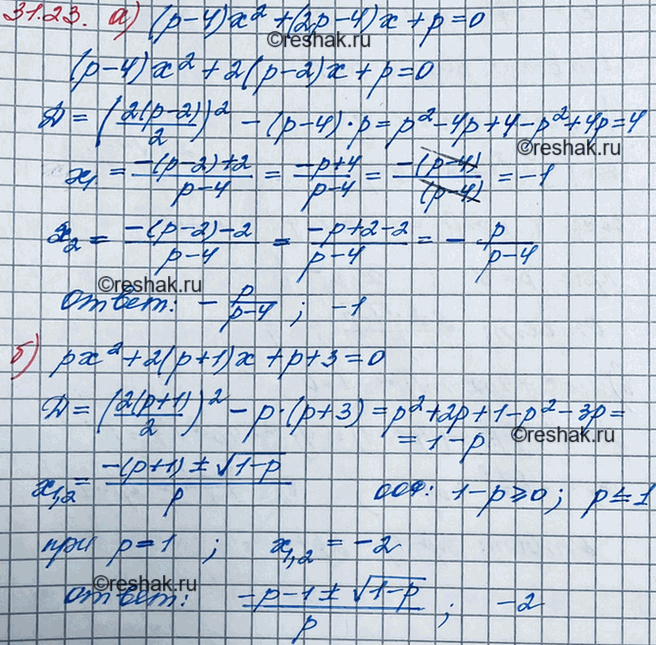 31.23. а) (p-4)x² + (2p-4)x + p = 0
©reshak.ru
(p-4)x² + 2(p-2)x + p = 0
Д = (2(p-2)/2)² - (p-4)·p = p² - 4p + 4 - p² + 4p = 4
©reshak.ru
x₁ = -(p-2)+2/p-4 = -p+4/p-4 = -(p-4)/(p-4) = -1
x₂ = -(p-2)-2/p-4 = -p+2-2/p-4 = - p/p-4
©reshak.ru
ответ: - p/p-4 ; -1
б) px² + 2(p+1)x + p+3 = 0
Д = (2(p+1)/2)² - p·(p+3) = p² + 2p + 1 - p² - 3p =
= 1-p
©reshak.ru
x₁,₂ = -(p+1) ± √1-p/p ООФ: 1-p ≥ 0; p ≤ 1
при p = 1 ; x₁,₂ = -2
©reshak.ru
ответ: -p-1 ± √1-p/p ; -2